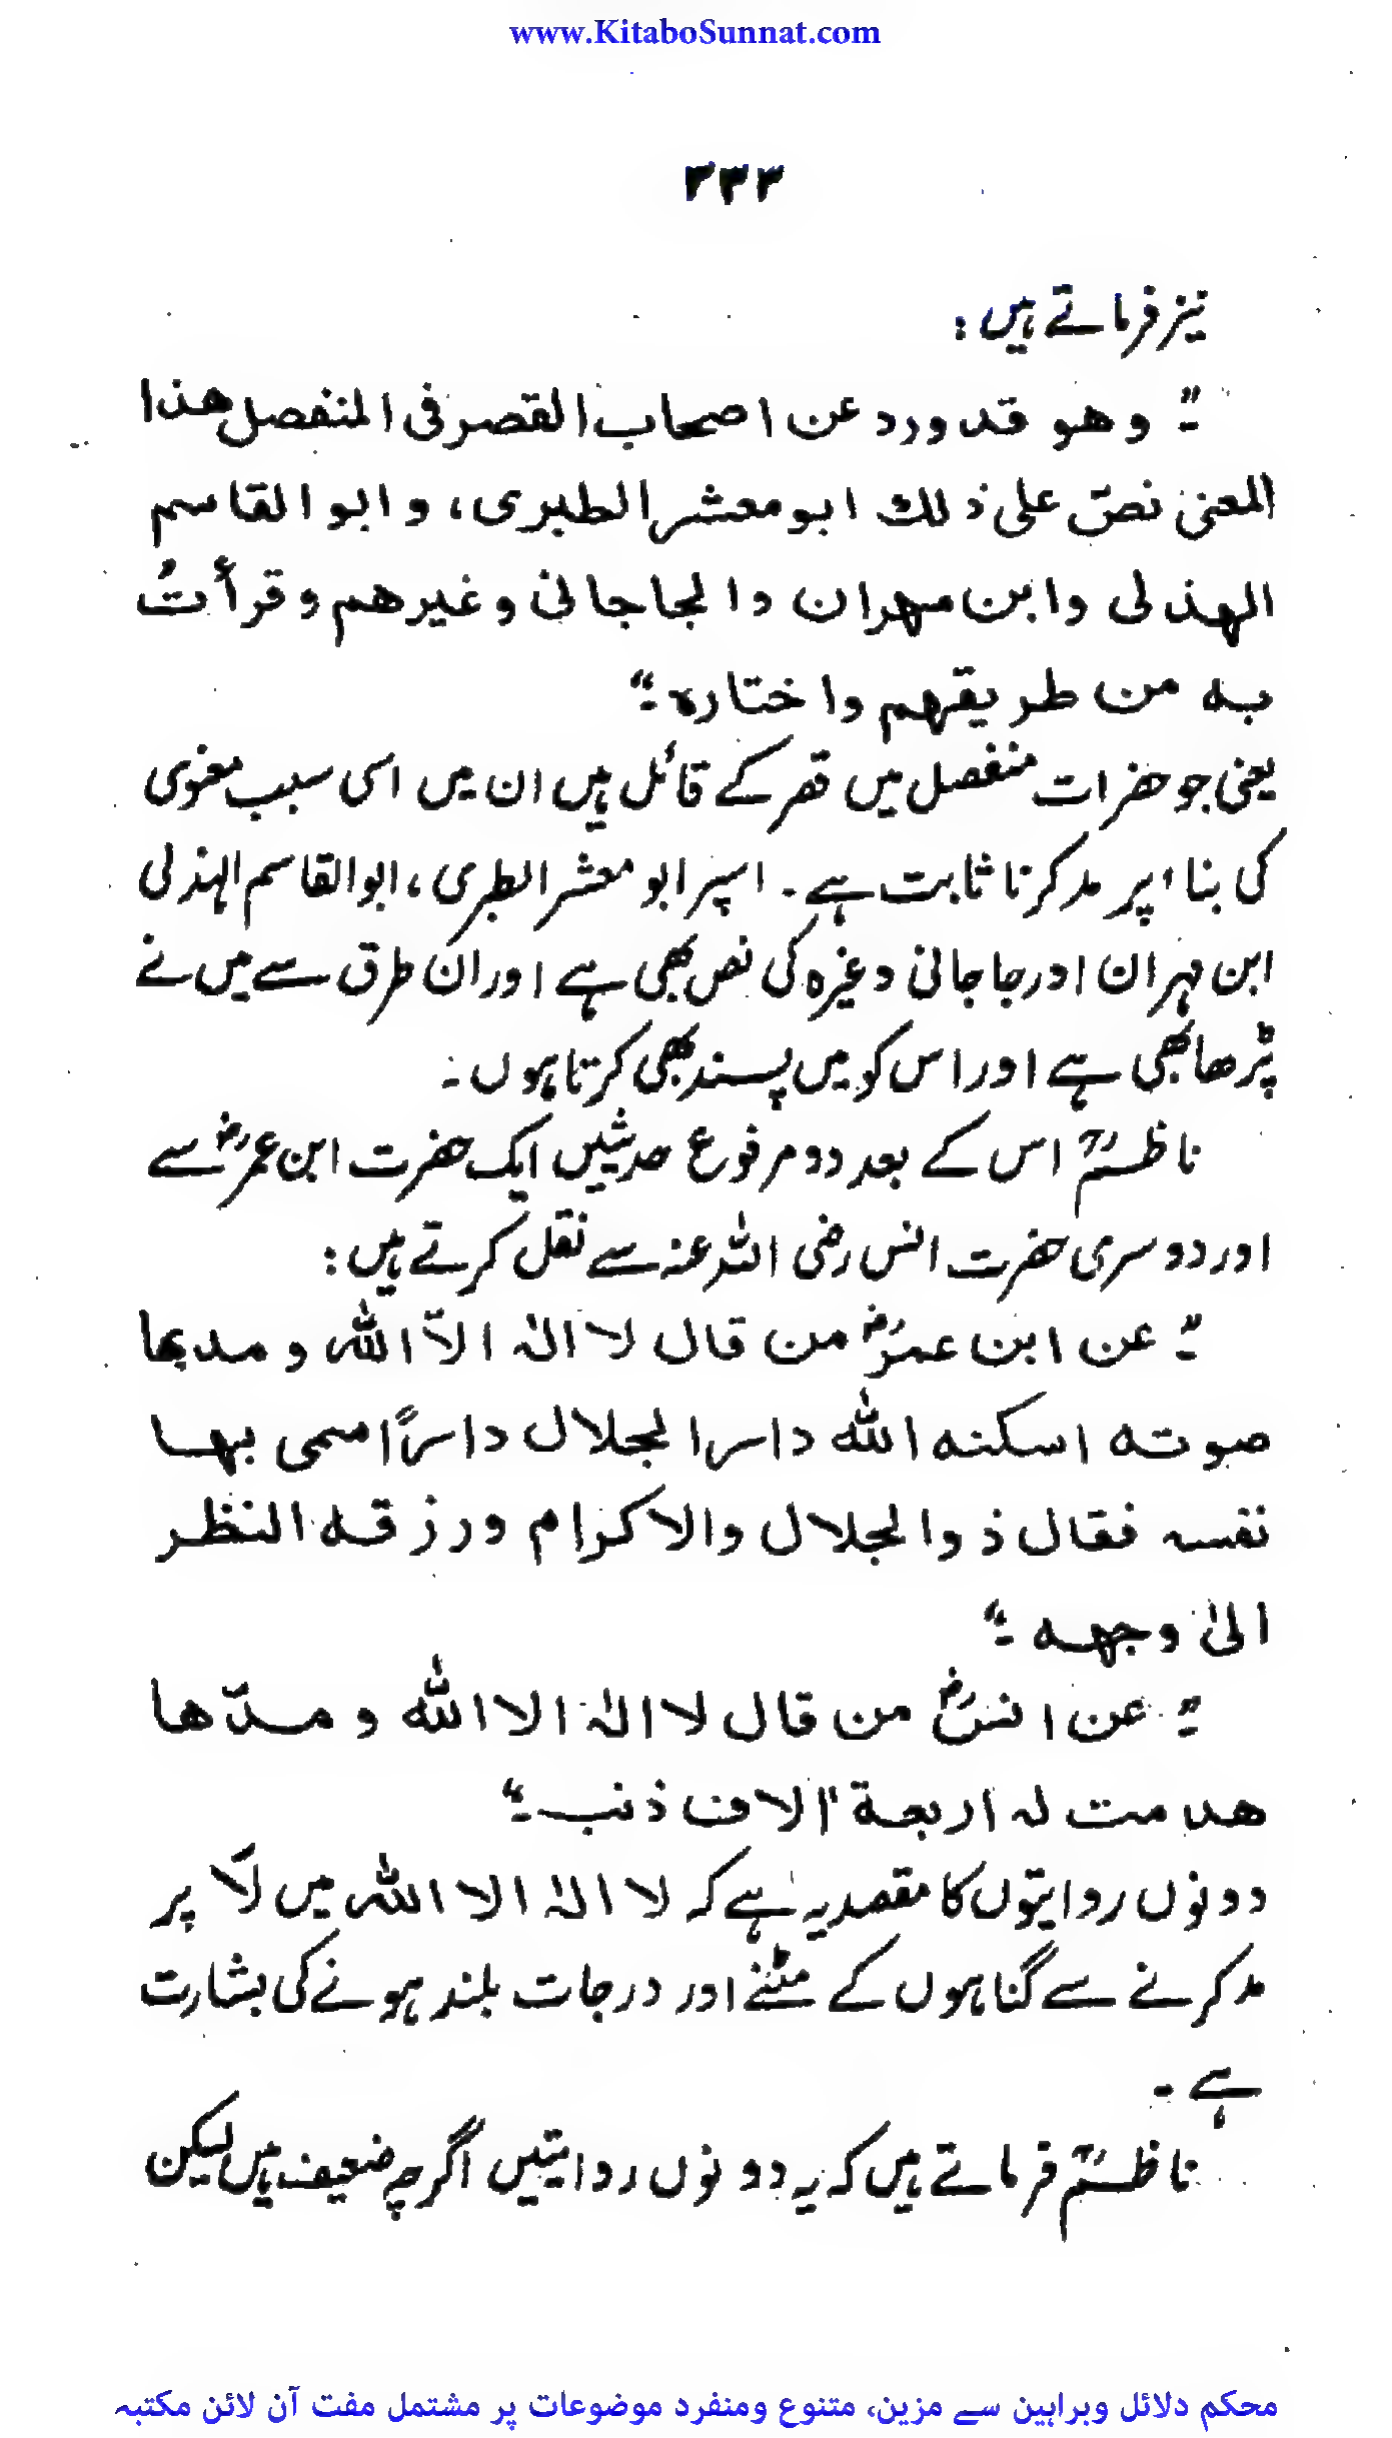 www.KitaboSunnat.com
۳۳۳
نیز فرماتے ہیں :
"۔ وهو قد ورد عن اصحاب القصر فی المنفصل هذا
المعنی نصّ علی ذلك ابو معشر الطبری، و ابو القاسم
الهذلی وابن مهران والجاجانی وغیرهم وقرأتُ
به من طریقهم واختاره۔"
یعنی جو حضرات منفصل میں قصر کے قائل ہیں ان میں اسی سبب معنوی
کی بناء پر مد کرنا ثابت ہے۔ اسپر ابو معشر الطبری، ابوالقاسم الہذلی
ابن مہران اور جاجانی وغیرہ کی نص بھی ہے اور ان طرق سے میں نے
پڑھا بھی ہے اور اس کو میں پسند بھی کرتا ہوں۔
ناظمؒ اس کے بعد دو مرفوع حدثیں ایک حضرت ابن عمرؓ سے
اور دوسری حضرت انس رضی اللہ عنہ سے نقل کرتے ہیں :
"۔ عن ابن عمرؓ من قال لا الٰه الّا الله و مد بها
صوته اسکنه الله دار الجلال داراً سمی بها
نفسه فقال ذوالجلال والاکرام ورزقه النظر
الیٰ وجهه۔"
"۔ عن انسؓ من قال لا الٰه الا الله و مدّها
هدمت له اربعة اٰلاف ذنب۔"
دونوں روایتوں کا مقصد یہ ہے کہ لا الٰہ الا اللہ میں لآ پر
مد کرنے سے گناہوں کے مٹنے اور درجات بلند ہونے کی بشارت
ہے۔
ناظمؒ فرماتے ہیں کہ یہ دونوں روایتیں اگرچہ ضعیف ہیں لیکن
محکم دلائل وبراہین سے مزین، متنوع ومنفرد موضوعات پر مشتمل مفت آن لائن مکتبہ